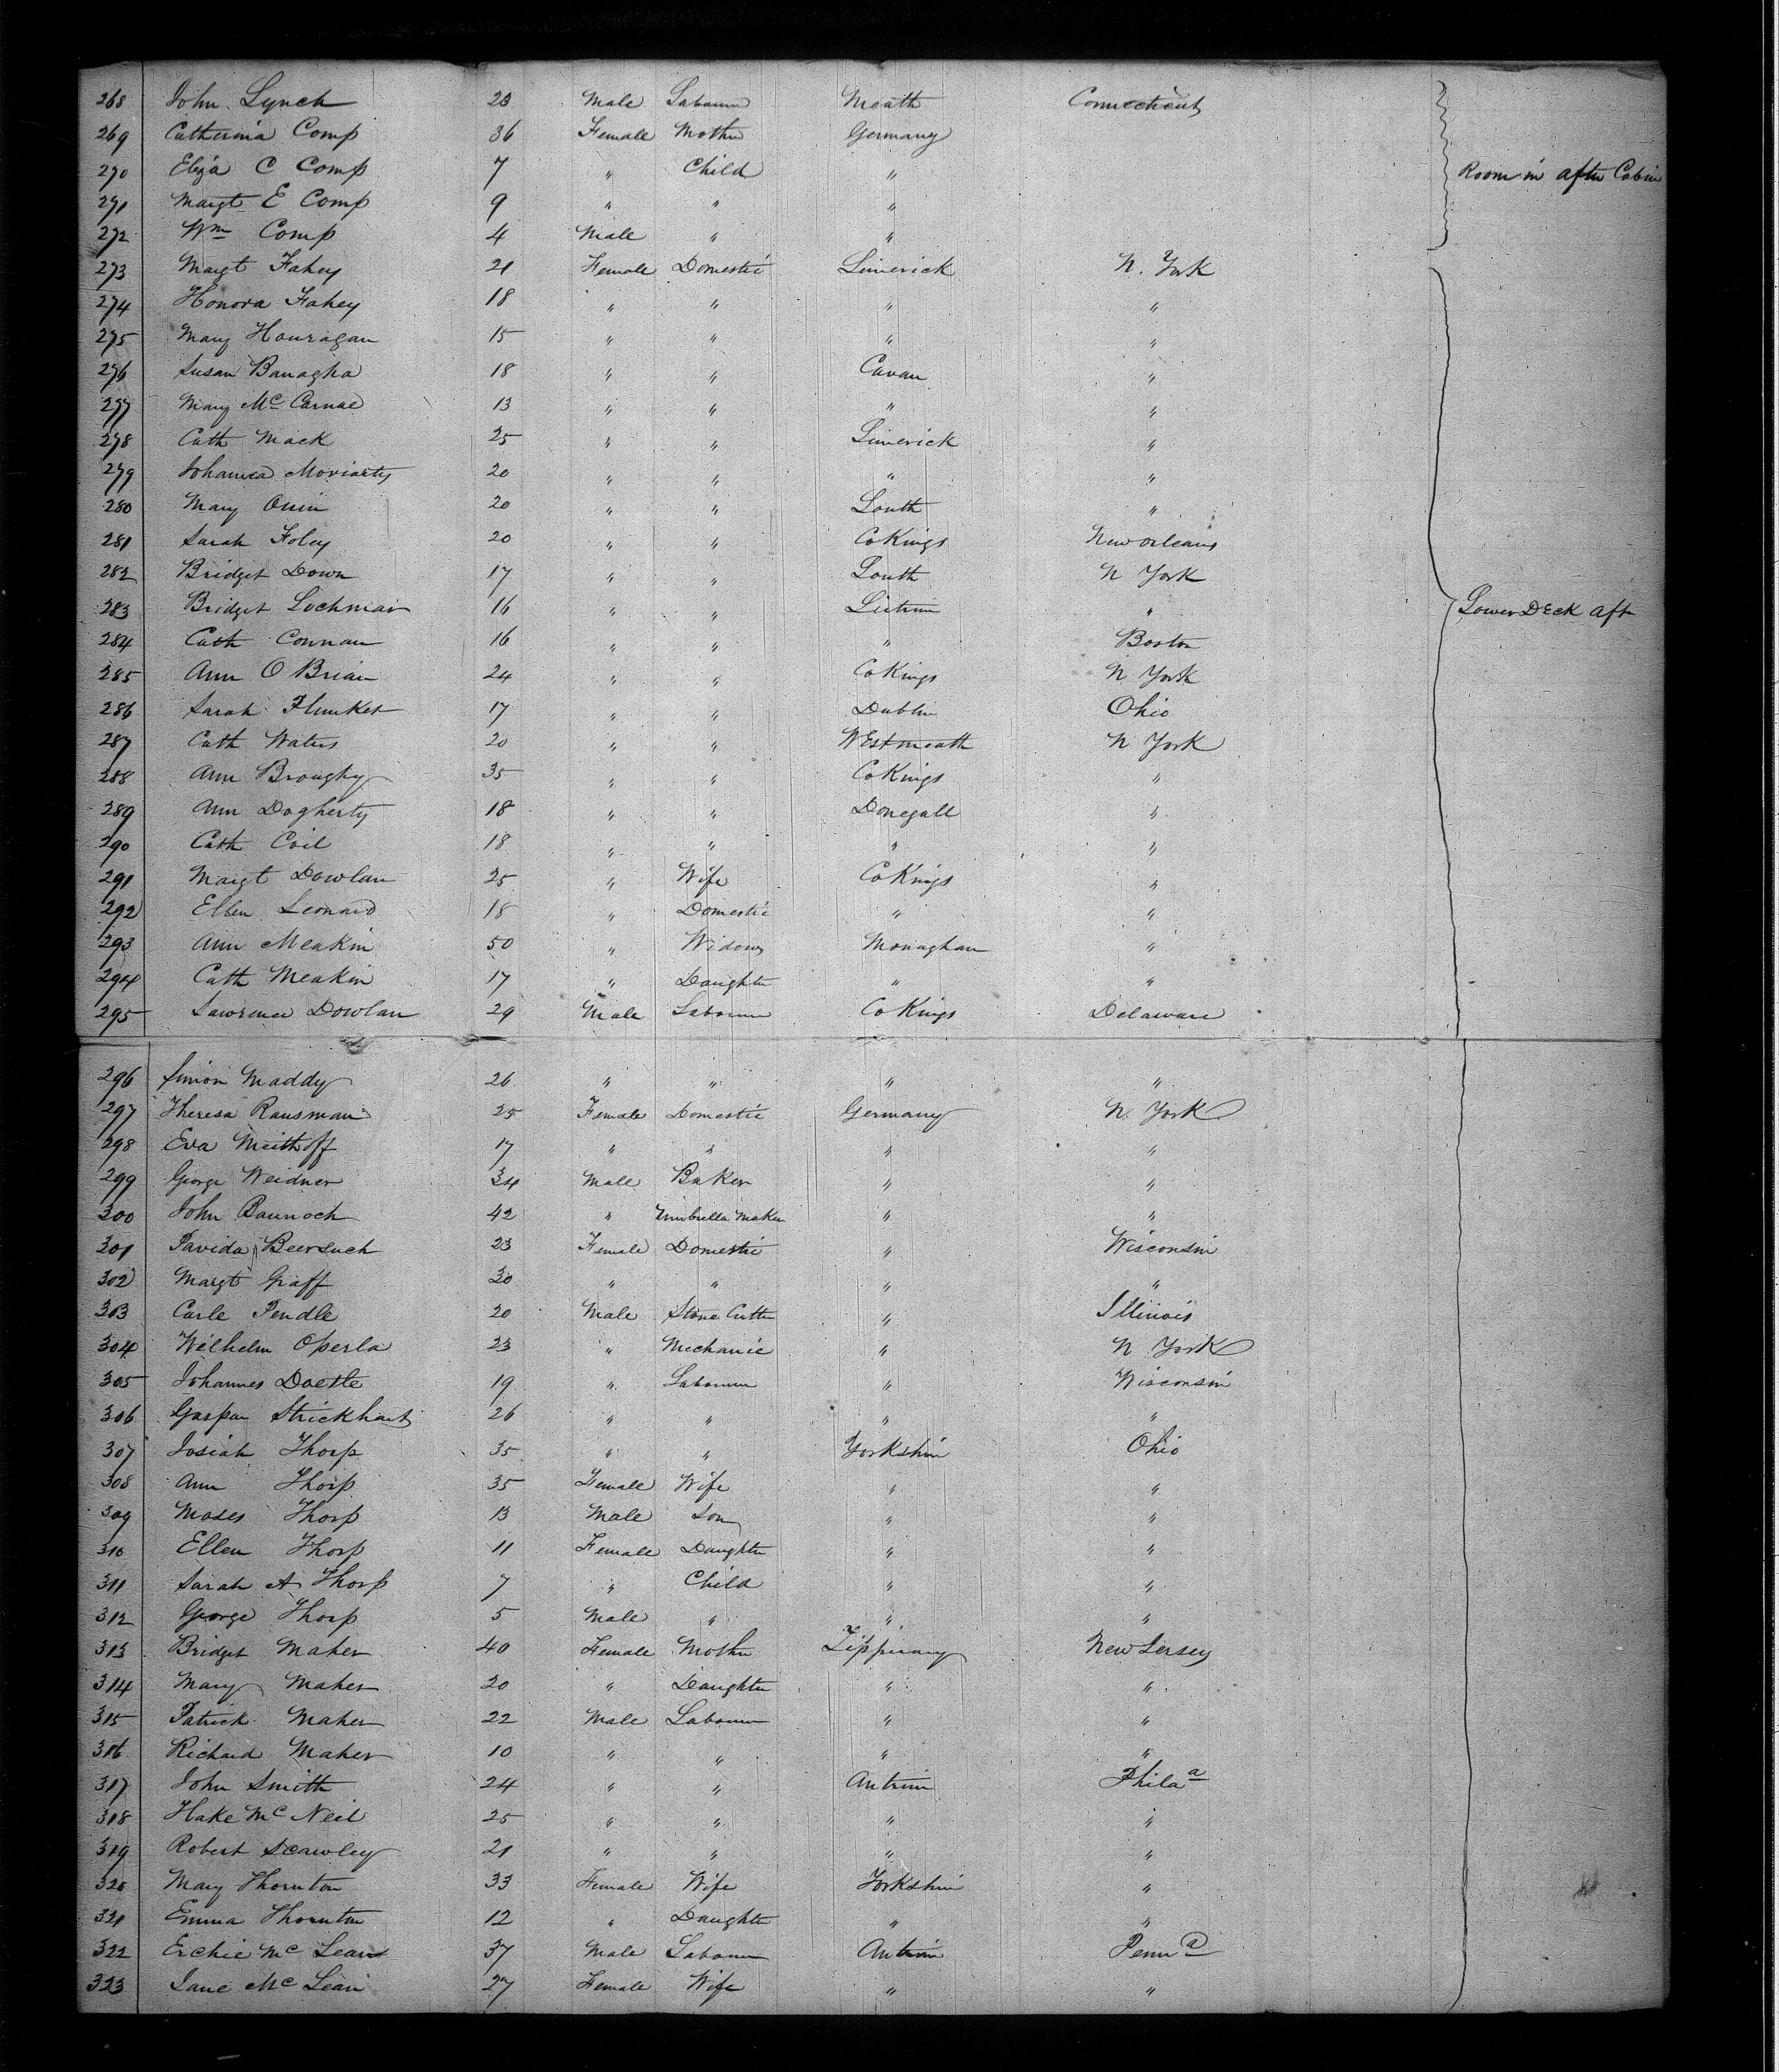 268 John Lynch 23 Male Labourer Meath Connecticut
269 Catherina Comp 36 Female Mother Germany
270 Eliza C Comp 7 " Child " Room in after Cabin
271 Margt E Comp 9 " " "
272 Wm Comp 4 Male " "
273 Margt Fahey 21 Female Domestic Limerick N. York
274 Honora Fahey 18 " " " "
275 Mary Houragan 15 " " " "
276 Susan Banagha 18 " " Cavan "
277 Mary McCarnae 13 " " " "
278 Cath Mack 25 " " Limerick "
279 Johanna Moriarty 20 " " " "
280 Mary Quin 20 " " Louth "
281 Sarah Foley 20 " " Co Kings New Orleans
282 Bridget Down 17 " " Louth N York
283 Bridget Lochman 16 " " Lietrim " Lower Deck aft
284 Cath Connan 16 " " " Boston
285 Ann O Brian 24 " " Co Kings N York
286 Sarah Plunket 17 " " Dublin Ohio
287 Cath Waters 20 " " Westmeath N York
288 Ann Broughy 35 " " Co Kings "
289 Ann Dogherty 18 " " Donegall "
290 Cath Coil 18 " " " "
291 Margt Dowlan 25 " Wife Co Kings "
292 Ellen Leonard 18 " Domestic " "
293 Ann Meakin 50 " Widow Monaghan "
294 Cath Meakin 17 " Daughter " "
295 Lawrence Dowlan 29 Male Labourer Co Kings Delaware
296 Simon Maddy 26 " " " "
297 Theresa Rausman 25 Female Domestic Germany N. York
298 Eva Meithoff 17 " " " "
299 George Weidner 34 Male Baker " "
300 John Baunoch 42 " Umbrella Maker " "
301 Davida Beersuch 23 Female Domestic " Wisconsin
302 Margt Graff 30 " " " "
303 Carle Pendle 20 Male Stone Cutter " Illinois
304 Wilhelm Operla 23 " Mechanic " N York
305 Johannes Doetle 19 " Labourer " Wisconsin
306 Gaspar Strickhart 26 " " " "
307 Josiah Thorp 35 " " Yorkshire Ohio
308 Ann Thorp 35 Female Wife " "
309 Moses Thorp 13 Male Son " "
310 Ellen Thorp 11 Female Daughter " "
311 Sarah A Thorp 7 " Child " "
312 George Thorp 5 Male " " "
313 Bridget Maher 40 Female Mother Tipperary New Jersey
314 Mary Maher 20 " Daughter " "
315 Patrick Maher 22 Male Labourer " "
316 Richard Maher 10 " " " "
317 John Smith 24 " " Antrim Phila
318 Hake McNeil 25 " " " "
319 Robert Scawley 21 " " " "
320 Mary Thornton 33 Female Wife Yorkshire "
321 Emma Thornton 12 " Daughter " "
322 Erchie McLean 37 Male Labourer Antrim Penna
323 Jane McLean 27 Female Wife " "